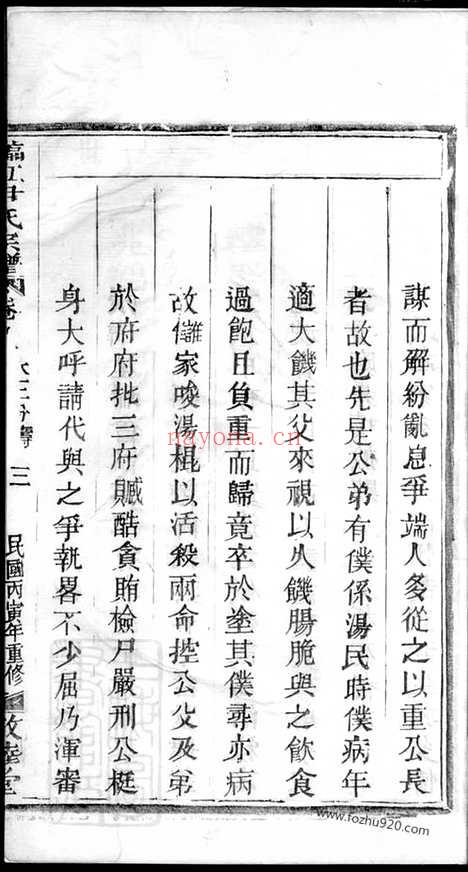 謀而解紛亂息爭端人多從之以重公長
者故也先是公弟有僕係湯民時僕病年
適大饑其父來視以久饑腸脆與之飲食
過飽且負重而歸竟卒於塗其僕尋亦病
故讎家唆湯棍以活殺兩命控公父及弟
於府府批三府贓酷貪賄檢尸嚴刑公梃
身大呼請代與之爭執畧不少屈乃渾審
尹氏宗譜
卷
三
民國丙寅年重修
敦睦堂
nayona.cn
www.fozhu920.com